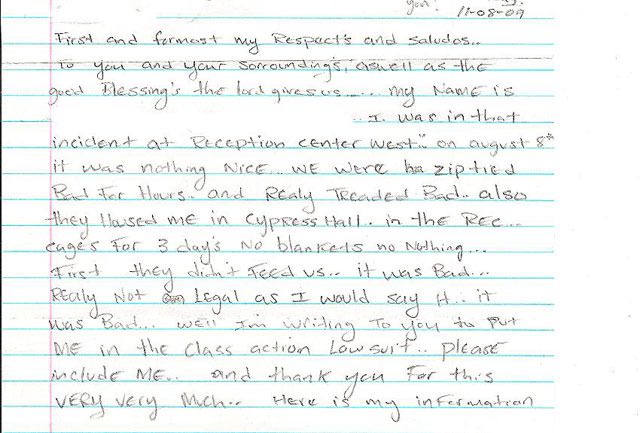 you!
11-08-09
First and formost my Respect's and saludos..
To you and your sorrounding's, aswell as the
good Blessing's the lord gives us...... my Name is
.. I was in that
incident at Reception center west.." on august 8th
it was nothing Nice... WE WERE ziptied
Bad For Hours.. and Realy Treaded Bad.. also
they Housed ME in Cypress Hall. in the REC...
cages For 3 day's No blankets no Nothing...
First they didn't FEED us.. it was Bad...
REaly Not Legal as I would say it.. it
was Bad... well I'm writing To you to put
ME in the Class action Lawsuit.. please
include ME.. and thank you For this
VERY VERY Much.. Here is my information